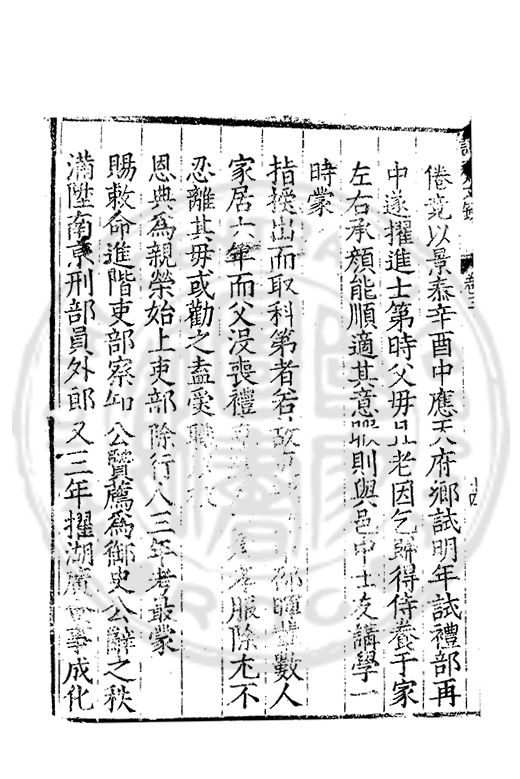 倦竟以景泰辛酉中應天府鄉試明年試禮部再
中遂擢進士第時父母且老因乞歸得侍養于家
左右承顏能順適其意暇則與邑中士友講學一
時蒙
指授出而取科第者若 數人
家居六年而父没喪禮 服除尤不
忍離其母或勸之盍受職
恩典爲親榮始上吏部除行人三年考最蒙
賜敕命進階吏部察知公賢薦爲御史公辭之秩
滿陞南京刑部員外郎又三年擢湖廣僉事成化